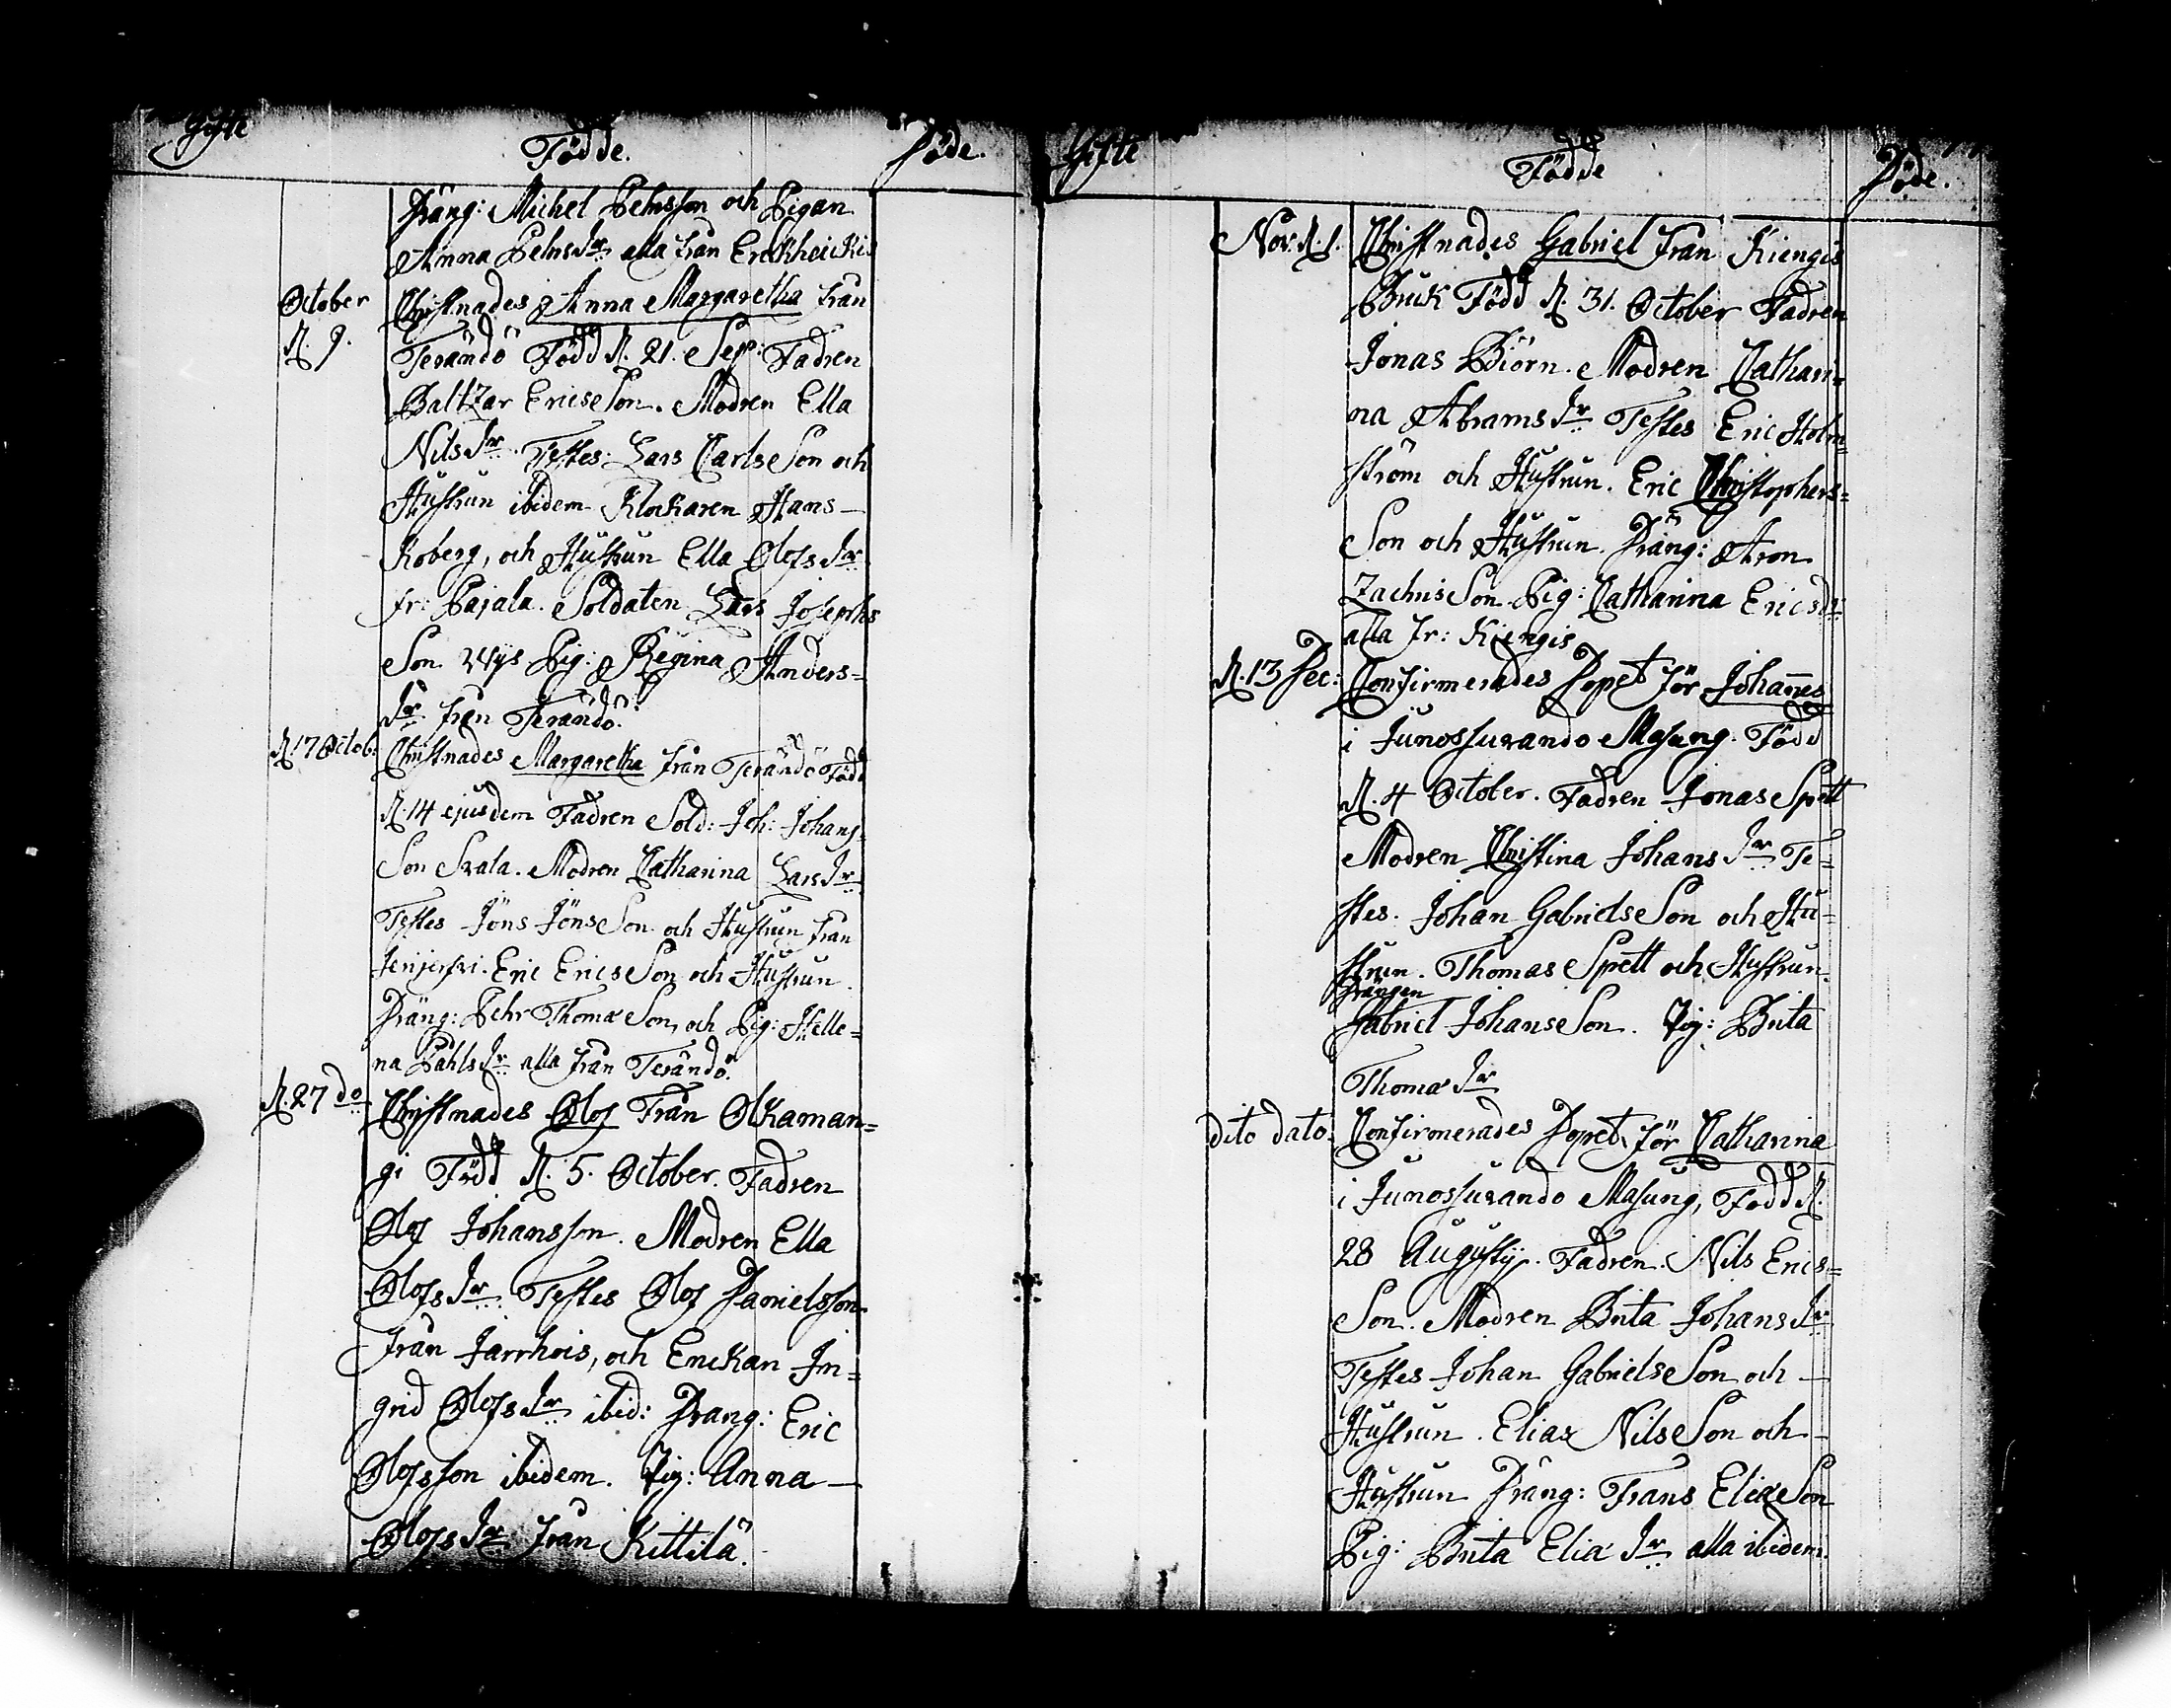 Gifte
Födde.
Döde.
Dräng: Michel Pehrsson och Pigan
Anna Pehrs dr. alla från Erkheickis
October Christnades Anna Margaretha från
d. 9. Terändö Född d. 21. Sep: Fadren
Baltzar EricseSon. Modren Ella
Nils dr. Testes: Lars CarlseSon och
Hustrun ibidem Klockaren Hans
Koberg, och Hustrun Ella Olofs dr
fr: Pajala. Soldaten Lars Josephs
Son Pig: Regina Anders=
dr. från Terändö.
d. 17 Octob: Christnades Margaretha från Terändö Född
d. 14 ejusdem Fadren Sold: Joh: Johans=
Son Svala. Modren Catharina Lars dr
Testes Jöns JönseSon och Hustrun från
Eric EricseSon och Hustrun.
Dräng: Pehr ThomæSon, och Pig: Helle=
na Påhls dr. alla från Terändö.
d. 27 do Christnades Olof Från Olkaman=
gi Född d. 5. October. Fadren
Olof Johansson. Modren Ella
Olofs dr. Testes Olof Danielsson
från Jarrhois, och Enckan In=
grid Olofs dr ibid: Drang: Eric
Olofsson ibidem. Pig: Anna
Olofs dr från Kittilä.
Gifte
Födde
Döde.
Nov: d. 1. Christnades Gabriel från Kiengis
Bruk Född d. 31. October Fadren
Jonas Biörn. Modren Cathari=
na Abrams dr Testes Eric Holm=
ström och Hustrun. Eric Christophers=
Son och Hustrun. Dräng: Aron
ZachrisSon Pig: Catharina Erics dr.
alla fr: Kiengis
d. 13 Dec: Confirmerades Dopet för Johannes
i Junossuando Masung. Född
d. 4 October. Fadren Jonas Spett
Modren Christina Johans dr Te=
stes. Johan GabrielseSon och Hu=
strun. Thomas Spett och Hustrun.
Drängen
Gabriel JohanseSon. Pig: Brita
Thomæ dr
dito dato. Confirmerades Dopet för Catharina
i Junossuando Masung, Född d.
28 Augustij. Fadren. Nils Erics=
Son. Modren Brita Johans dr
Testes Johan GabrielseSon och
Hustrun. Elias NilseSon och
Hustrun Dräng: Frans EliæSon
Pig: Brita Eliæ dr alla ibidem.